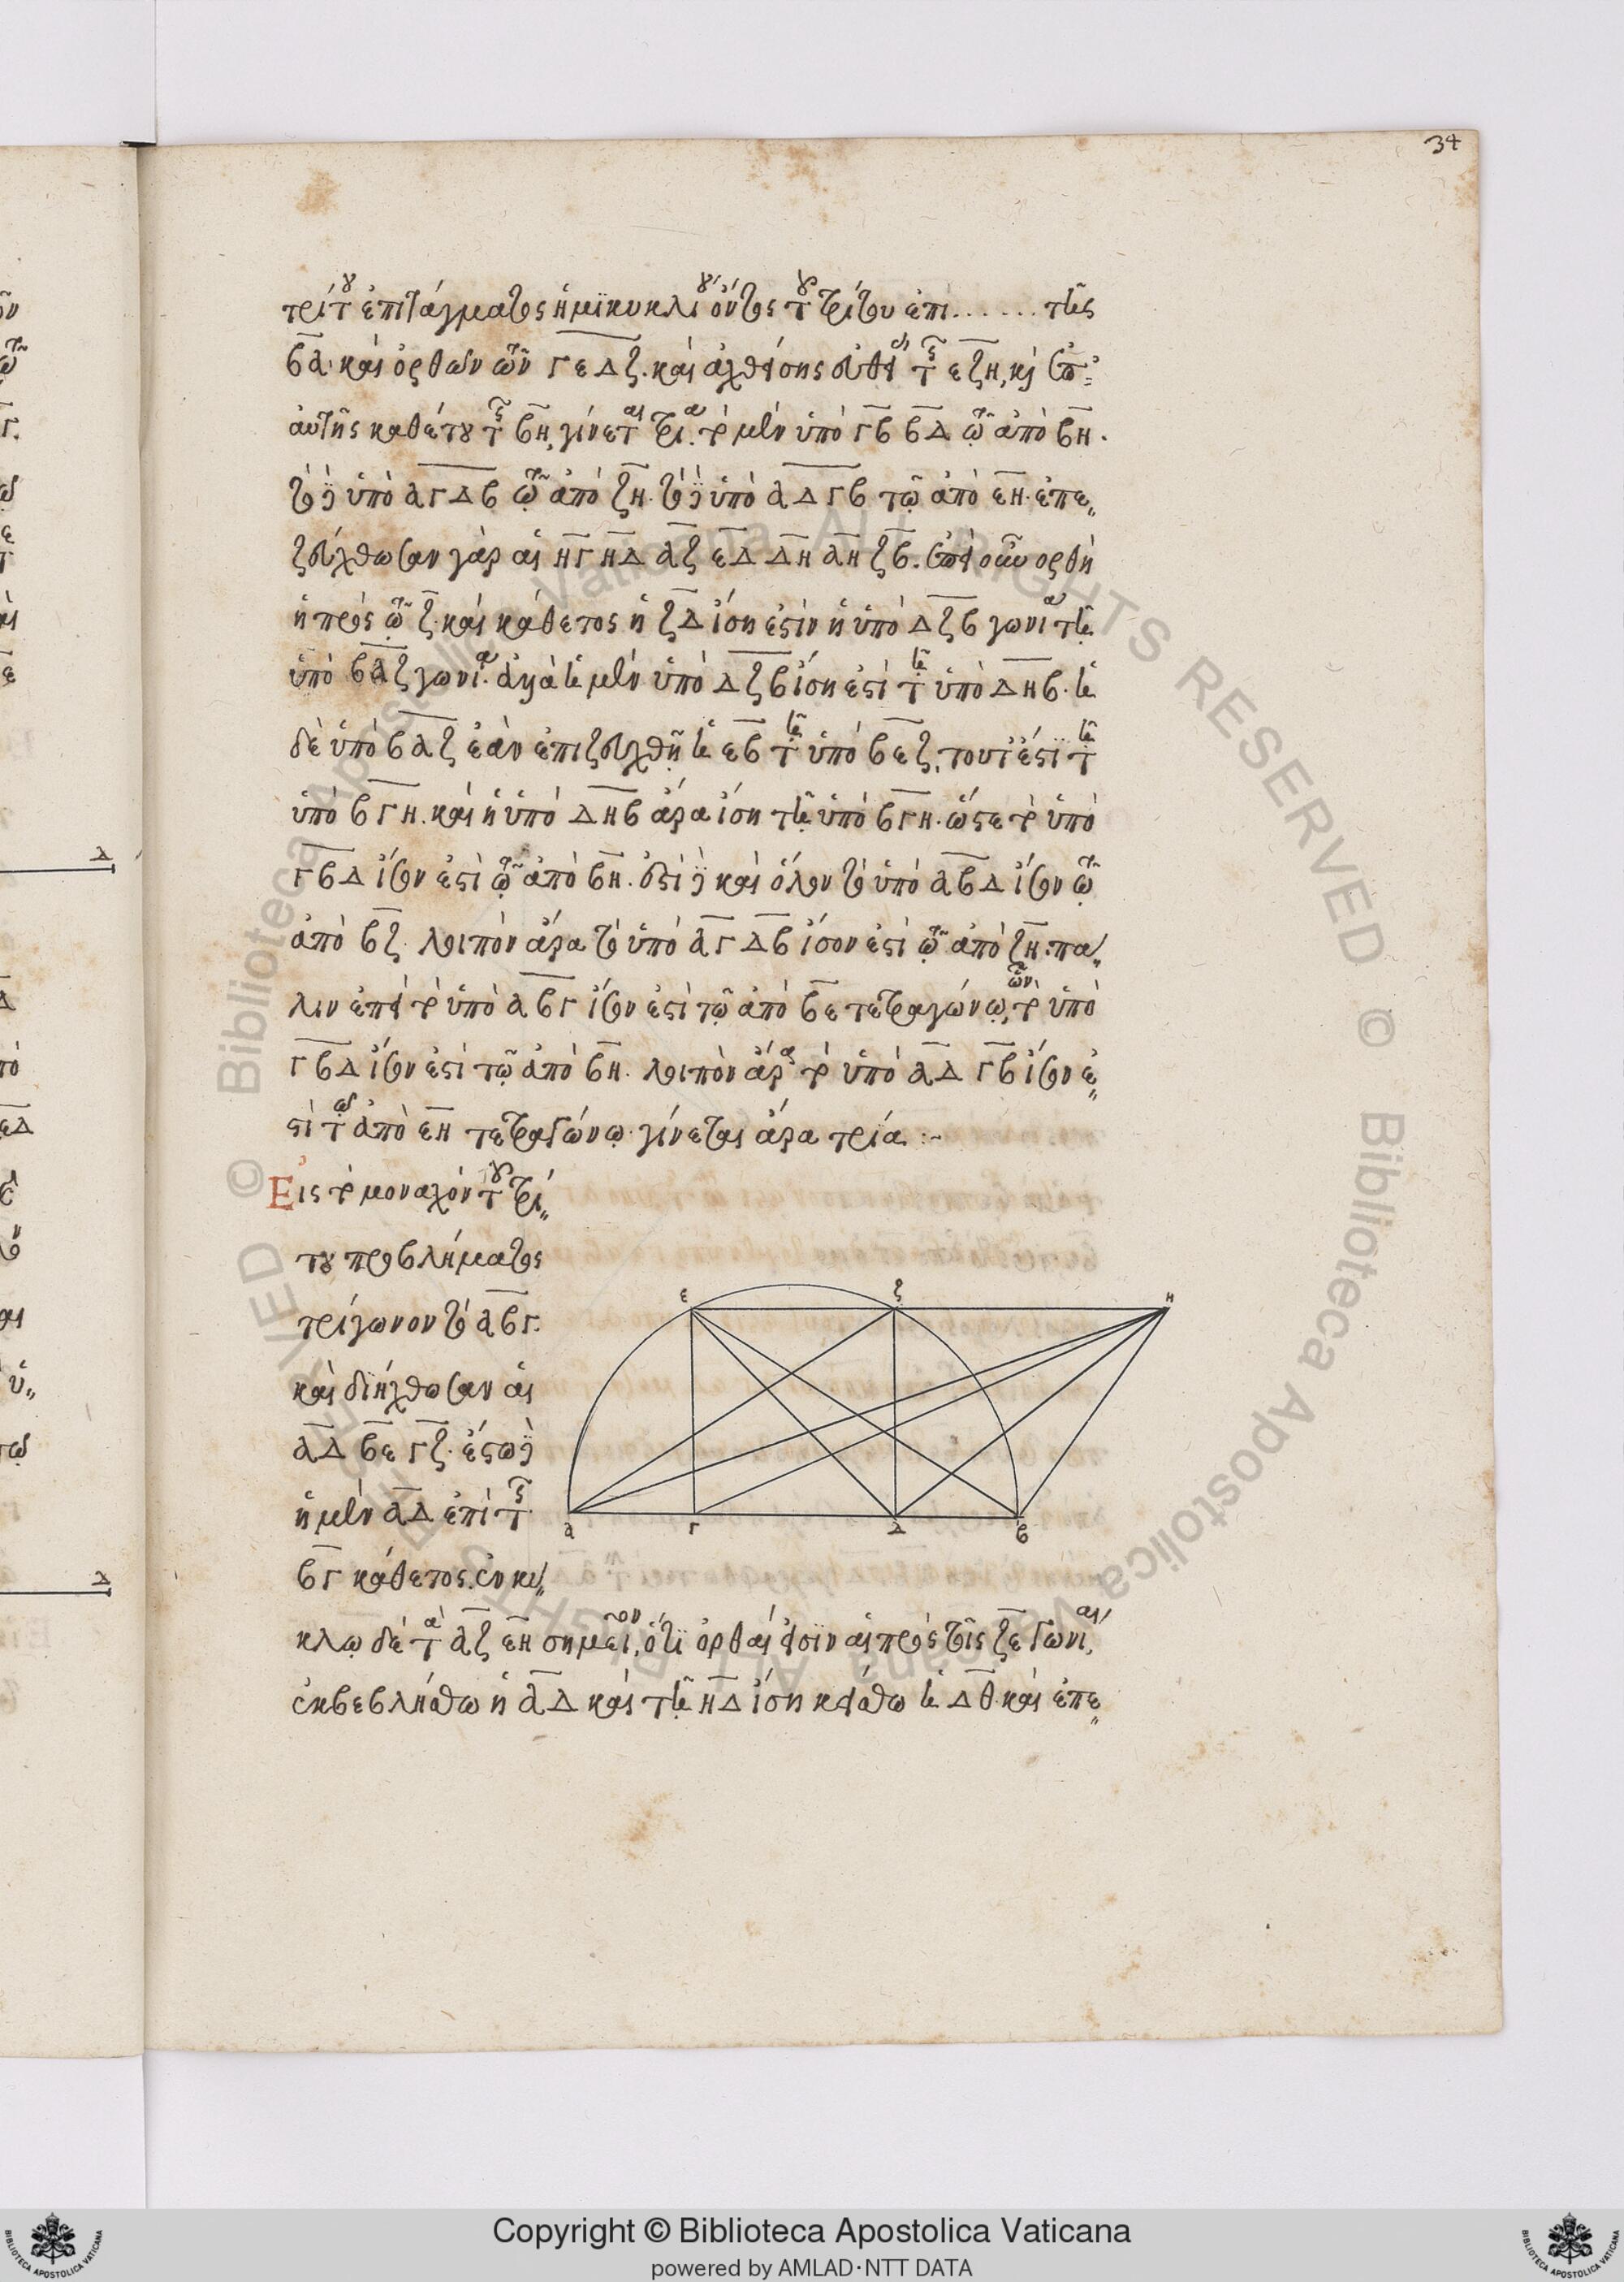 34
τρίτου ἐπιτάγματος ἡμϊκυκλίου ὄντος τοῦ τρίτου ἐπι...... τῆς
βα. καὶ ὀρθῶν τῶν γε δζ. καὶ ἀχθείσης εὐθείας τῆς εζη, καὶ ἐπ'
αὐτῆς καθέτου τῆς βη, γίνεται τρία. τὸ μὲν ὑπὸ γβ βδ τῷ ἀπὸ βη.
τὸ δὲ ὑπὸ αγ δβ τῷ ἀπὸ ζη. τὸ δὲ ὑπὸ αδ γβ τῷ ἀπὸ εη. ἐπε〃
ζεύχθωσαν γὰρ αἱ ηγ ηδ αζ εδ δη αη ζβ. ἐπεὶ οὖν ορθὴ
ἡ πρὸς τῷ ζ. καὶ κάθετος ἡ ζδ ἴση ἐστὶν ἡ ὑπὸ δζβ γωνία τῇ
ὑπὸ βαζ γωνίᾳ. ἀλλὰ ἡ μὲν ὑπὸ δζβ ἴση ἐστὶ τῇ ὑπὸ δηβ. ἡ
δὲ ὑπὸ βαζ ἐὰν ἐπιζευχθῇ ἡ εβ τῇ ὑπὸ βεζ, τουτέστι τῇ
ὑπὸ βγη. καὶ ἡ ὑπὸ δηβ ἄρα ἴση τῇ ὑπὸ βγη. ὥστε τὸ ὑπὸ
γβδ ἴσον ἐστὶ τῷ ἀπὸ βη. ἐστὶ δὲ καὶ ὅλον τὸ ὑπὸ αβδ ἴσον τῷ
ἀπὸ βζ. λοιπὸν ἄρα τὸ ὑπὸ αγ δβ ἴσον ἐστὶ τῷ ἀπὸ ζη. πά〃
λιν ἐπεὶ τὸ ὑπὸ αβγ ἴσον ἐστὶ τῷ ἀπὸ βε τετραγώνῳ, ὧν τὸ ὑπὸ
γβδ ἴσον ἐστὶ τῷ ἀπὸ βη. λοιπὸν ἄρα τὸ ὑπὸ αδ γβ ἴσον ἐ〃
στὶ τῷ ἀπὸ εη τετραγώνῳ. γίνεται ἄρα τρία :~
Εἰς τὸ μοναχὸν τοῦ τρί〃
του προβλήματος
τρίγωνον τὸ αβγ.
καὶ διήχθωσαν αἱ
αδ βε γζ. ἔστω δὲ
ἡ μὲν αδ ἐπὶ τῆς
βγ κάθετος. ἐν κύ〃
κλῳ δὲ τὰ αζ εη σημεῖον, ὅτι ὀρθαί εἰσϊν αἱ πρὸς τοῖς ζε γωνίαι,
ἐκβεβλήσθω ἡ αδ καὶ τῇ ηδ ἴση κείσθω ἡ δθ. καὶ ἐπε〃
ε ζ η
α γ δ β
© Biblioteca Apostolica Vaticana ALL RIGHTS RESERVED
Copyright © Biblioteca Apostolica Vaticana
powered by AMLAD·NTT DATA